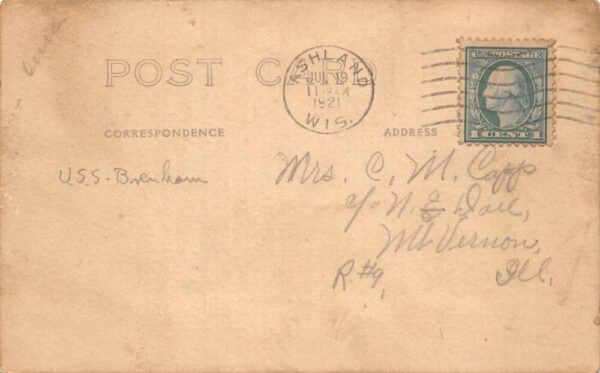 POST CARD
ASHLAND
JUL 19
11
1921
WIS.
U.S. POSTAGE
1 CENT 1
CORRESPONDENCE
ADDRESS
U.S.S. Brenham
Mrs. C. M. Capp
c/o N. E. Dare,
Mt Vernon,
R#9, Ill.